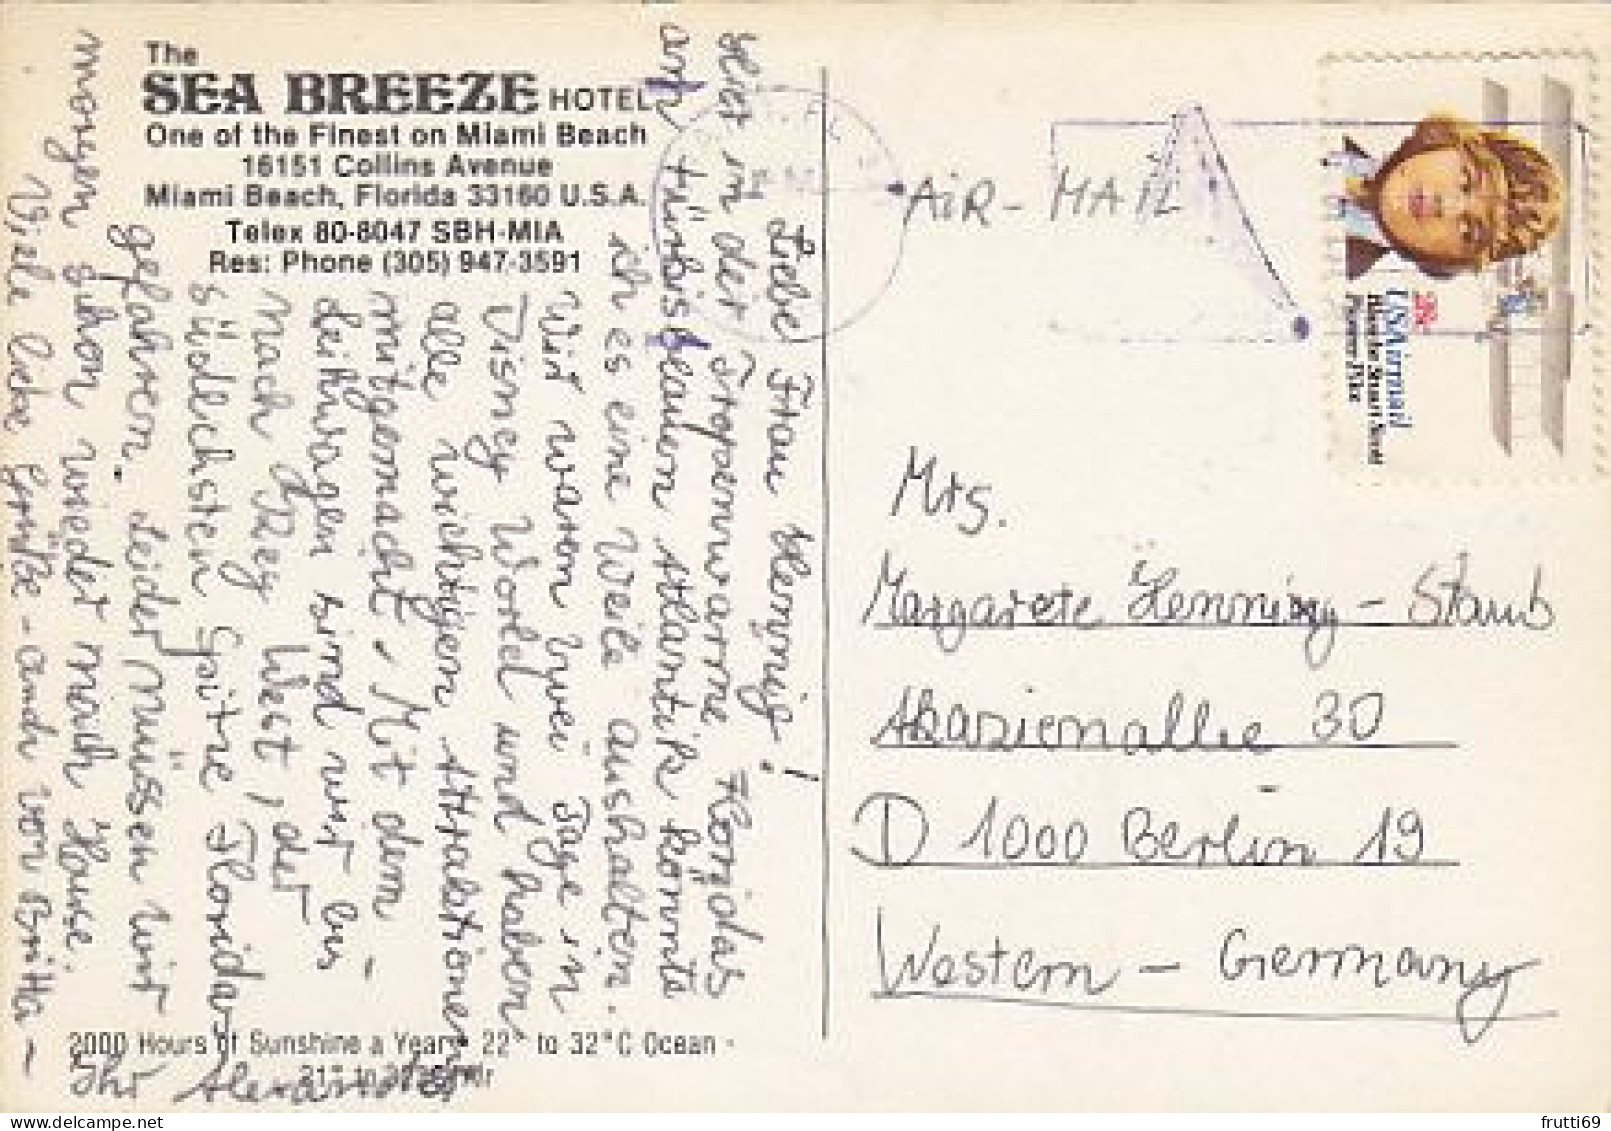 The
SEA BREEZE HOTEL
One of the Finest on Miami Beach
16151 Collins Avenue
Miami Beach, Florida 33160 U.S.A.
Telex 80-8047 SBH-MIA
Res: Phone (305) 947-3591
Liebe Frau Hennig!
Hier in der Tropenwarme Floridas
am türkisblauen Atlantik könnte
ich es eine Weile aushalten.
Wir waren zwei Tage in
Disney World und haben
alle wichtigen Attraktionen
mitgemacht. Mit dem
Leihwagen sind wir bis
nach Key West, der
südlichsten Spitze Floridas
gefahren. Leider müssen wir
morgen schon wieder nach Hause.
Viele liebe Grüße - auch von Britta -
Ihr Alexander
2000 Hours of Sunshine a Year 22° to 32°C Ocean -
AIR-MAIL
USAirmail
Blanche Stuart Scott
Pioneer Pilot
Mrs.
Margarete Henning - Staub
Akazienallee 30
D 1000 Berlin 19
Western - Germany
frutti69